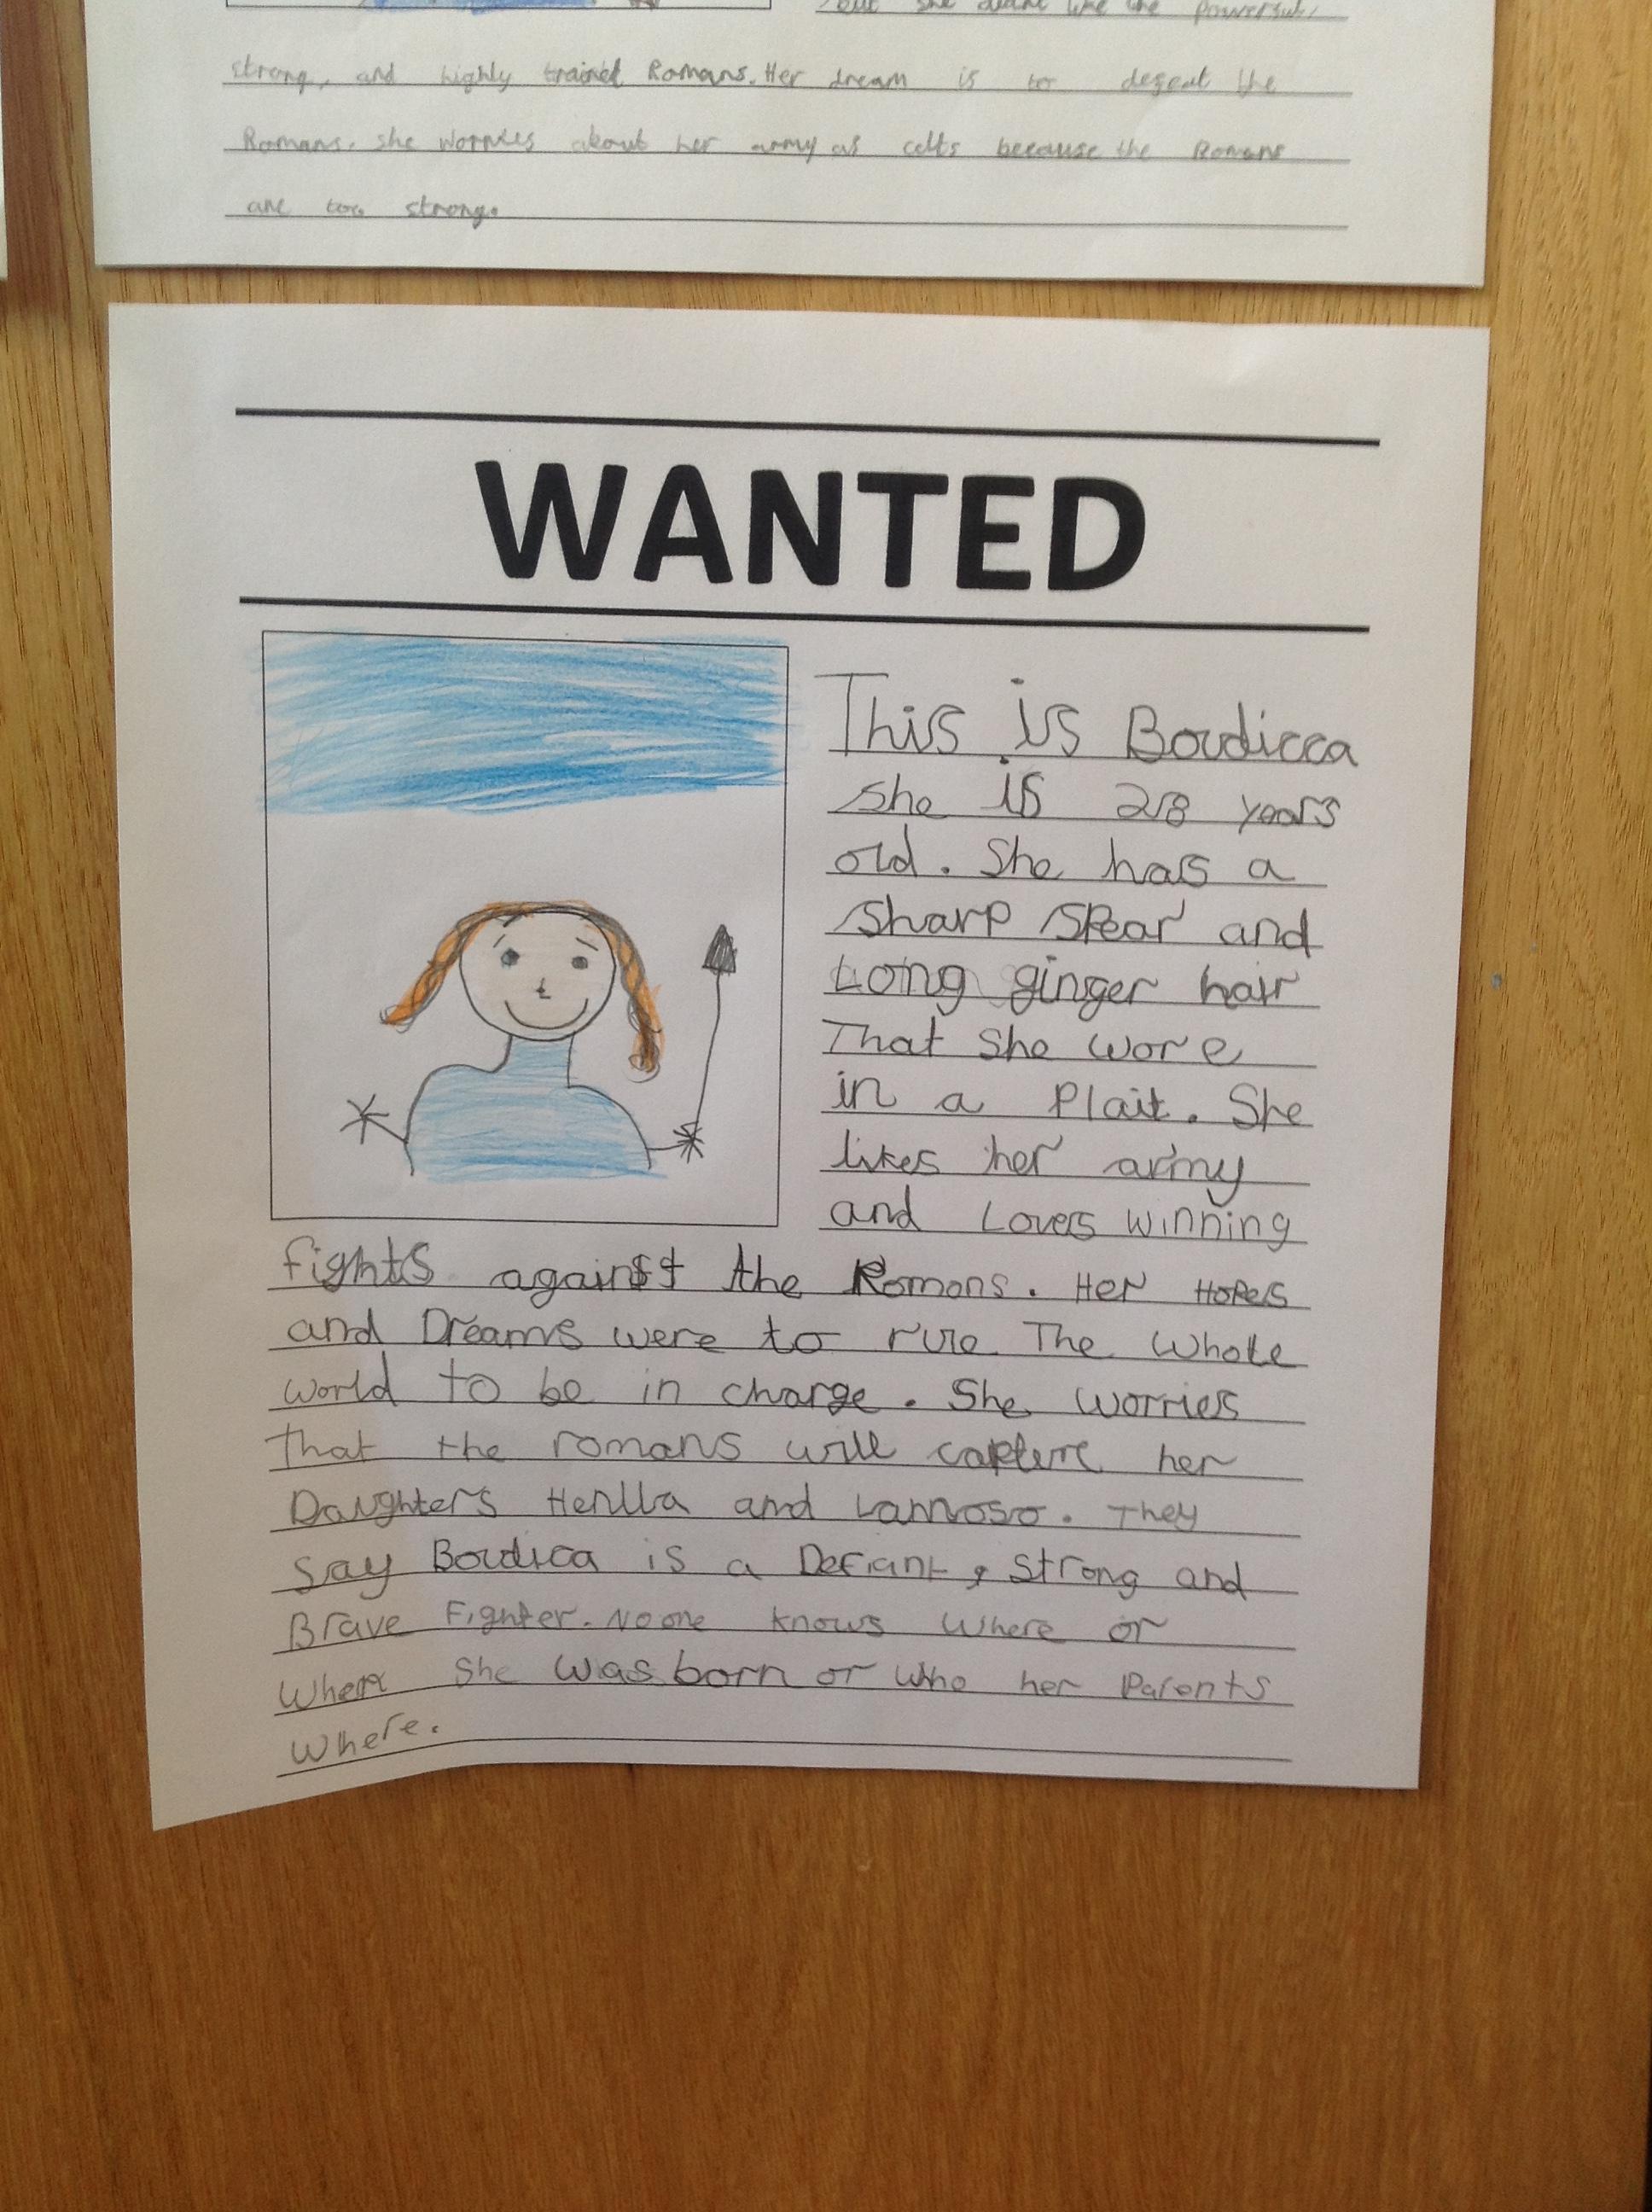 but she didnt like the powerful,
strong, and highly trained Romans. Her dream is to defeat the
Romans. She worries about her army of celts because the Romans
are too strong.
WANTED
This is Boudicca
she is 28 years
old. She has a
sharp spear and
Long ginger hair
That she wore
in a Plait. She
likes her army
and Loves winning
fights against the Romans. Her Hopes
and Dreams were to rule The Whole
world to be in charge. She worries
that the romans will capture her
Daughters Henlla and Lannoso. They
say Boudica is a Defiant, Strong and
Brave Fighter. No one knows where or
When She was born or who her Parents
Where.